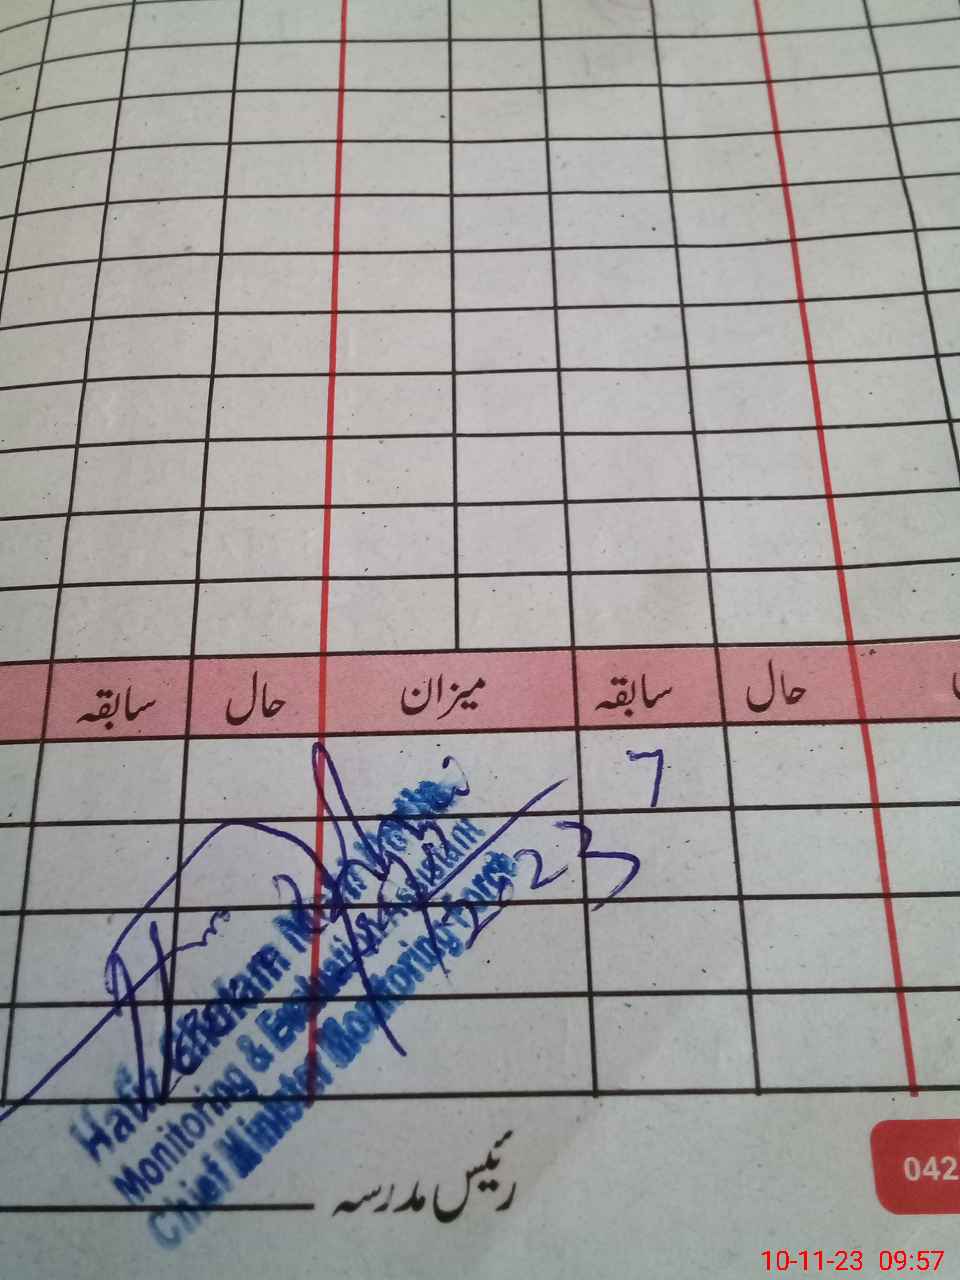 سابقہ حال میزان سابقہ حال
7
2023
Hafiz Ghulam
Monitoring & Evaluation Assistant
Chief Minister Monitoring Force
رئیس مدرسہ
042
10-11-23 09:57